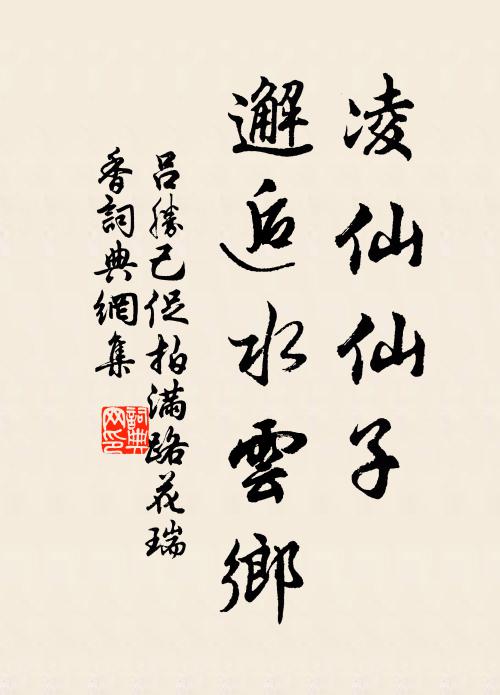 凌仙仙子
邂逅水雲鄉
呂勝己促拍滿路花瑞
香詞典網集
詞典網印